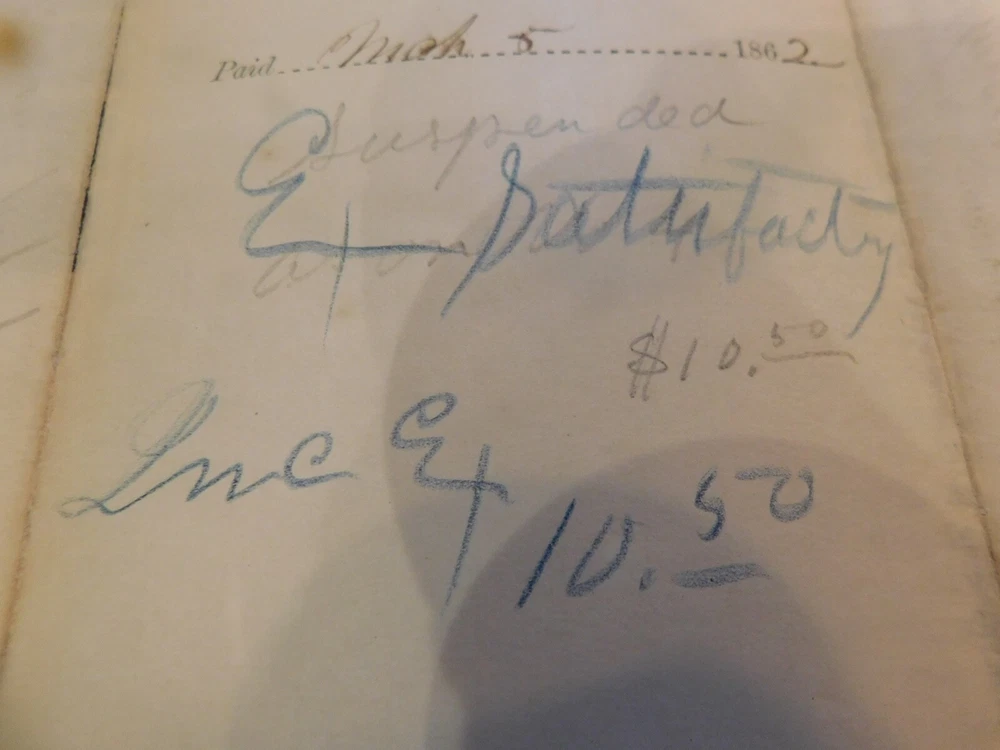 Paid Mch 5 1862
Suspended
Ex Satisfactry
$10.50
Inc Ex 10.50